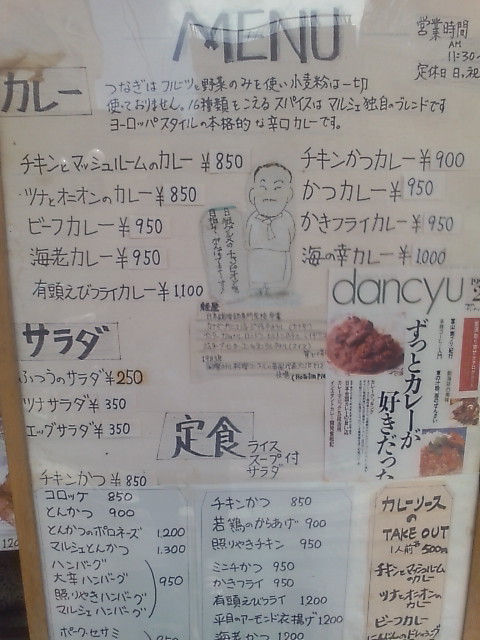 MENU
営業時間
AM
11:30~
定休日 日,祝
カレー
つなぎはフルーツと野菜のみを使い小麦粉は一切
使っておりません。16種類をこえるスパイスはマルシェ独自のブレンドです
ヨーロッパスタイルの本格的な辛口カレーです。
チキンとマッシュルームのカレー ¥850
ツナとオーオンのカレー ¥850
ビーフカレー ¥950
海老カレー ¥950
有頭えびフライカレー ¥1,100
チキンかつカレー ¥900
かつカレー ¥950
かきフライカレー ¥950
海の幸カレー ¥1000
dancyu
ずっとカレーが
好きだった
サラダ
ふつうのサラダ ¥250
ツナサラダ ¥350
エッグサラダ ¥350
定食
ライス
スープ付
サラダ
チキンかつ ¥850
コロッケ 850
とんかつ 900
とんかつのポロネーズ 1.200
マルシェとんかつ 1.300
ハンバーグ
大辛ハンバーグ
照りやきハンバーグ
マルシェハンバーグ
950
ポークセサミ
チキンかつ 850
若鶏のからあげ 900
照りやきチキン 950
ミニチかつ 950
かきフライ 950
有頭えびフライ 1200
平目のアーモンド衣揚げ 1200
海老かつ 1200
カレーソース
の
TAKE OUT
1人前 500円
チキンとマッシュルーム
のカレー
ツナとオーオンの
カレー
ビーフカレー